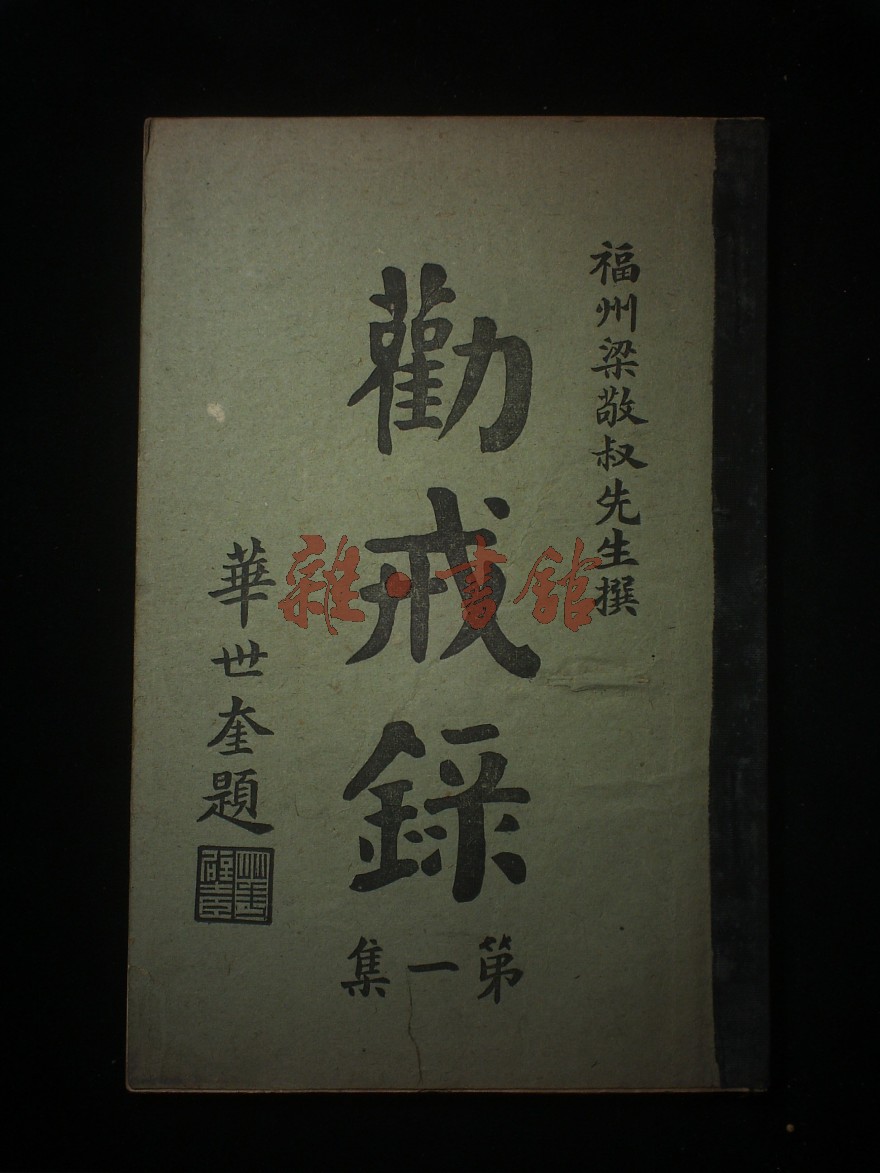 福州梁敬叔先生撰
勸戒錄
第一集
華世奎題
雜·書館